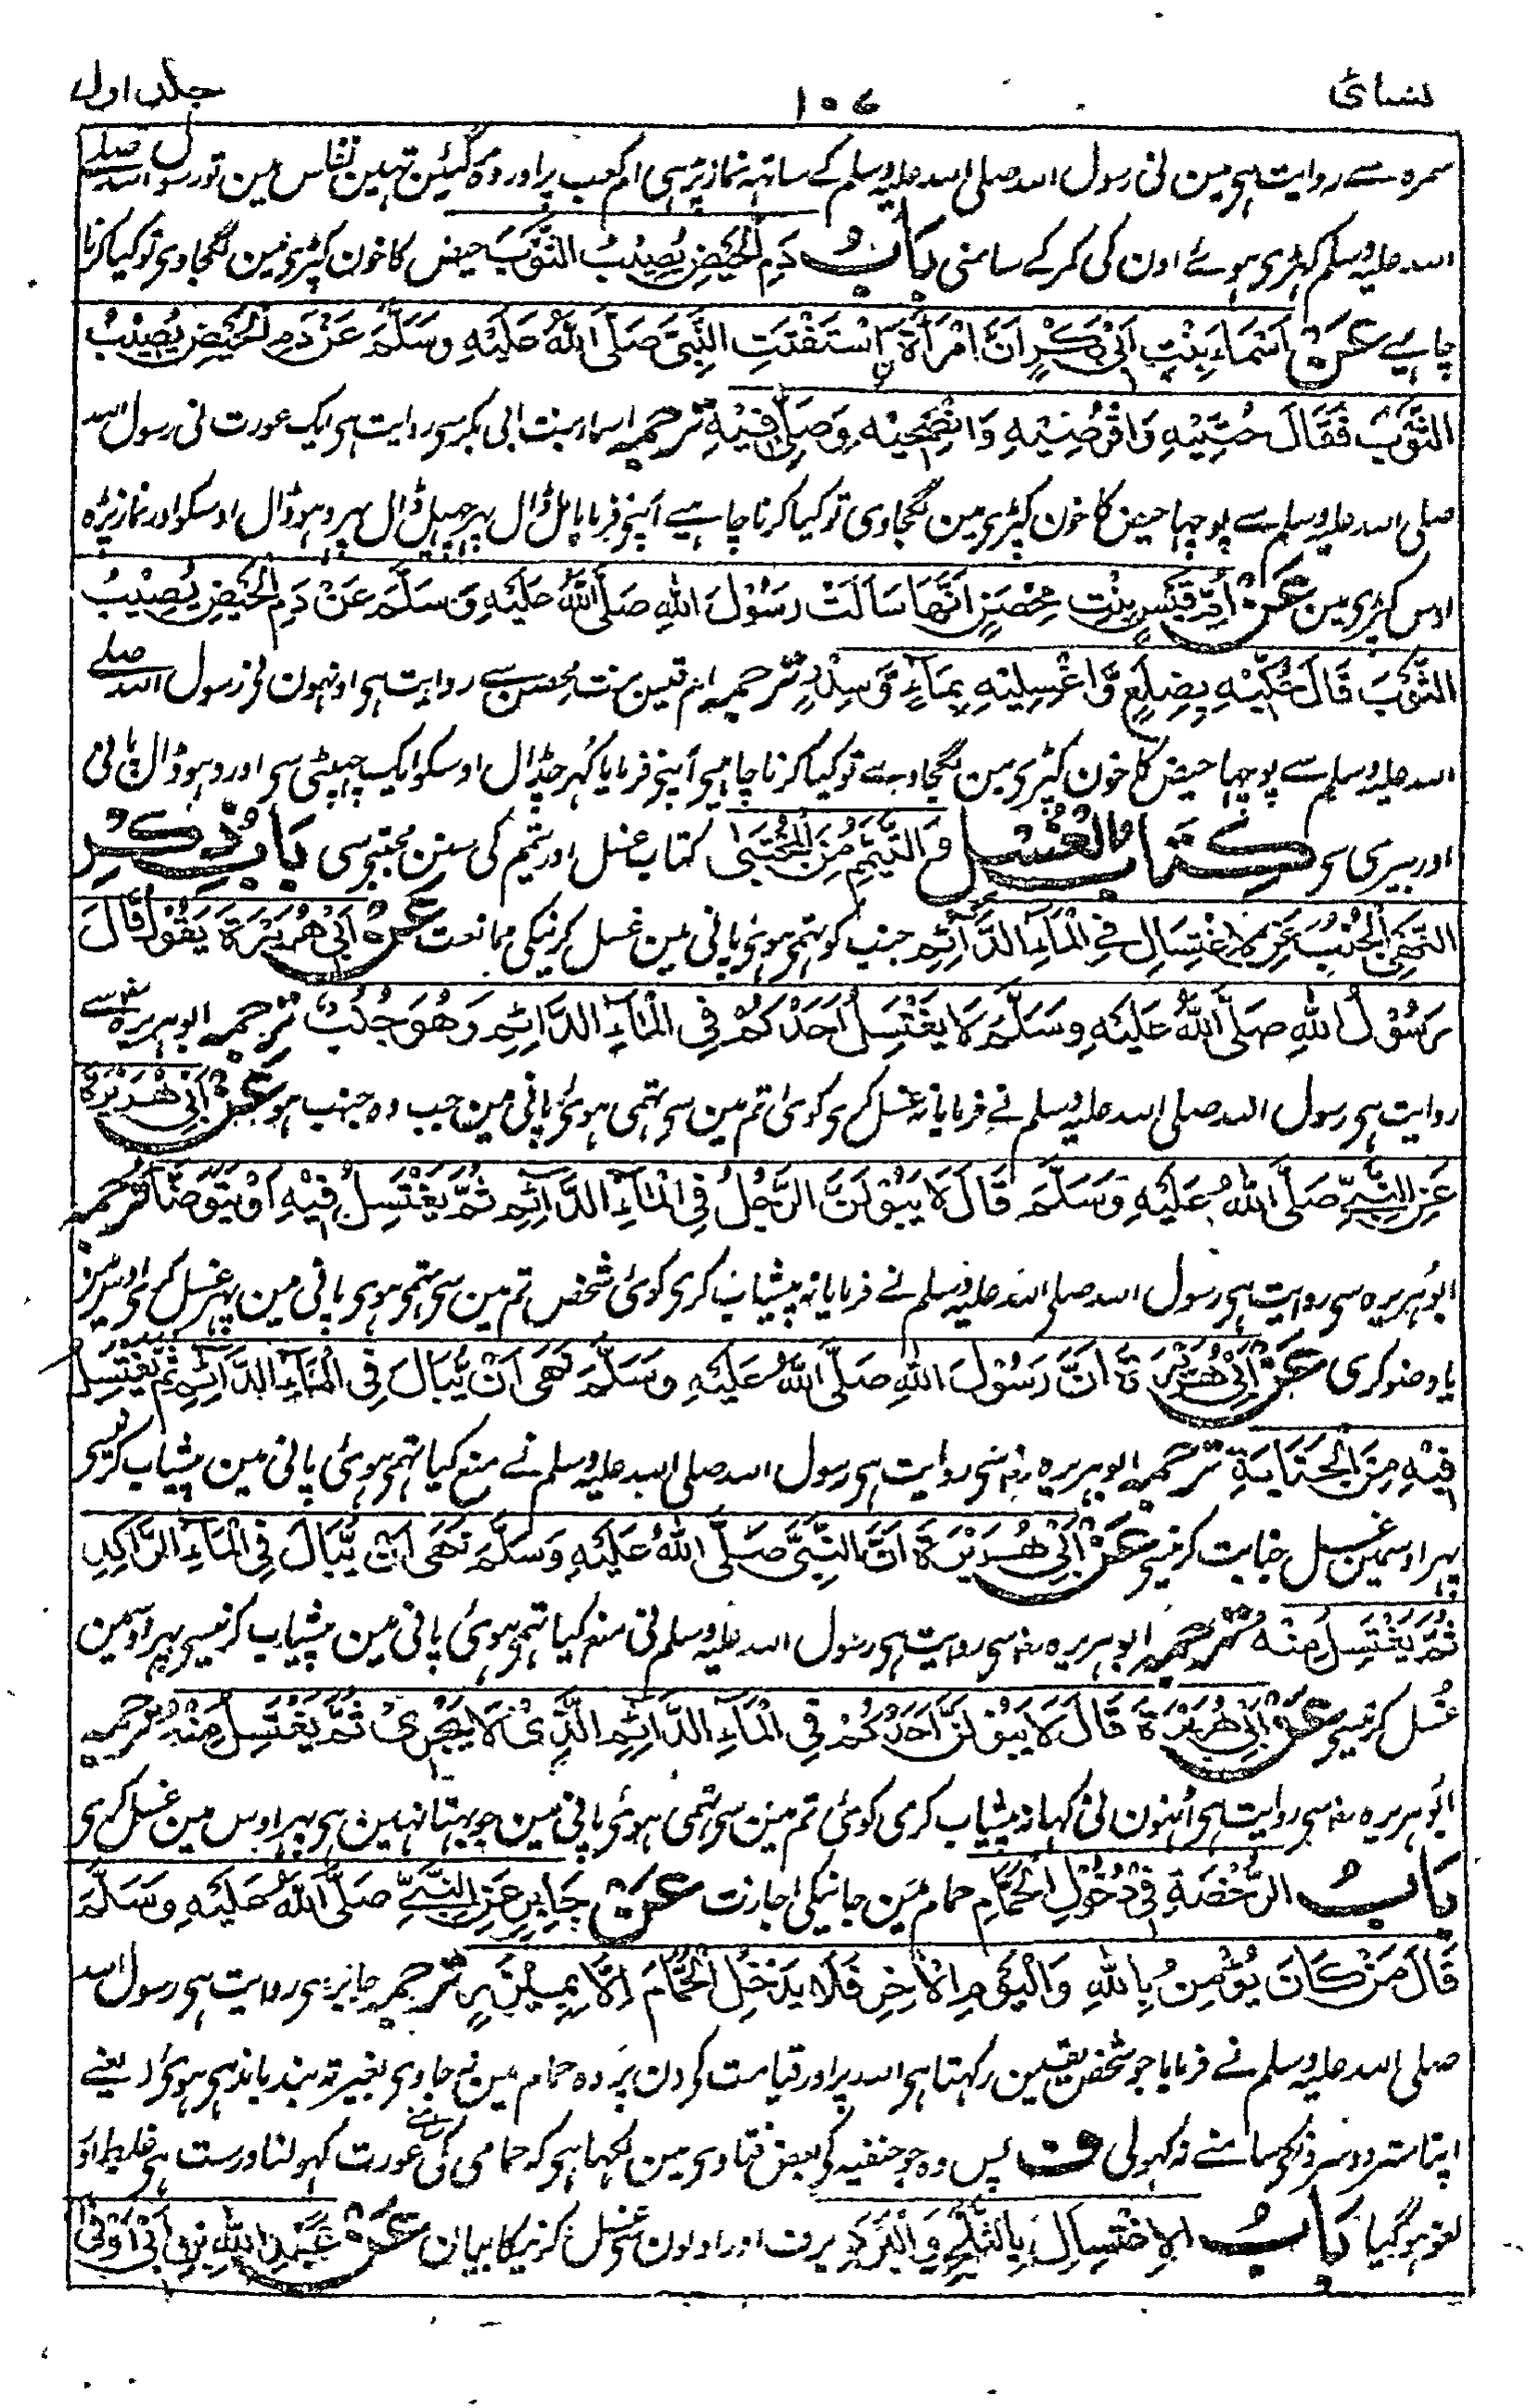 نسائی ۱۰۷ جلد اول
سمرہ سے روایت ہی مین نی رسول اللہ صلی اللہ علیہ وسلم کے ساتہہ نماز پڑہی ام کعب پر اور وہ مرگئین تہین نفاس مین تو رسول اللہ صلے
اللہ علیہ وسلم کہڑی ہوئے اون کی کمر کے سامنی بَابُ دَمِ الْحَيْضِ يُصِيْبُ الثَّوْبَ حیض کا خون کپڑی مین لگجاوی تو کیا کرنا
چاہیے عَنْ اَسْمَاءَ بِنْتِ اَبِيْ بَكْرٍ اَنَّ امْرَأَةً اسْتَفْتَتِ النَّبِيَّ صَلَّى اللّٰهُ عَلَيْهِ وَسَلَّمَ عَنْ دَمِ الْحَيْضِ يُصِيْبُ
الثَّوْبَ فَقَالَ حُتِّيْهِ وَاقْرُصِيْهِ وَانْضَحِيْهِ وَصَلِّيْ فِيْهِ ترجمہ اسماء بنت ابی بکر سی روایت ہی ایک عورت نی رسول اللہ
صلی اللہ علیہ وسلم سے پوچہا حیض کا خون کپڑی مین لگجاوی تو کیا کرنا چاہیے آپنی فرمایا مل ڈال پہر چہیل ڈال پہر دہو ڈال اوسکو اور نماز پڑہ
اوس کپڑی مین عَنْ اُمِّ قَيْسٍ بِنْتِ مِحْصَنٍ اَنَّهَا سَاَلَتْ رَسُوْلَ اللهِ صَلَّى اللّٰهُ عَلَيْهِ وَسَلَّمَ عَنْ دَمِ الْحَيْضِ يُصِيْبُ
الثَّوْبَ قَالَ حُكِّيْهِ بِضِلَعٍ وَّاغْسِلِيْهِ بِمَاءٍ وَّ سِدْرٍ ترجمہ ام قیس بنت محصن سے روایت ہی اونہون نی رسول اللہ صلے
اللہ علیہ وسلم سے پوچہا حیض کا خون کپڑی مین لگجاوے تو کیا کرنا چاہیی آپنی فرمایا کہرچ ڈال اوسکو ایک چپٹی سی اور دہو ڈال پانی
اور بیری سی كِتَابُ الْغُسْلِ وَ التَّيَمُّمِ مِنَ الْمُجْتَبٰى کتاب غسل اور تیمم کی سنن مجتبی سی بَابُ ذِكْرِ
النَّهْيِ الْجُنُبَ عَنِ الْاِغْتِسَالِ فِي الْمَاءِ الدَّائِمِ جنب کو تہمی ہوئی پانی مین غسل کرنیکی ممانعت عَنْ اَبِيْ هُرَيْرَةَ يَقُوْلُ قَالَ
رَسُوْلُ اللهِ صَلَّى اللّٰهُ عَلَيْهِ وَسَلَّمَ لَا يَغْتَسِلُ اَحَدُكُمْ فِي الْمَاءِ الدَّائِمِ وَهُوَ جُنُبٌ ترجمہ ابو ہریرہ رضہ سے
روایت ہی رسول اللہ صلی اللہ علیہ وسلم نے فرمایا نہ غسل کری کوئی تم مین سی تہمی ہوئی پانی مین جب وہ جنب ہو عَنْ اَبِيْ هُرَيْرَةَ
عَنِ النَّبِيِّ صَلَّى اللّٰهُ عَلَيْهِ وَسَلَّمَ قَالَ لَا يَبُوْلَنَّ الرَّجُلُ فِي الْمَاءِ الدَّائِمِ ثُمَّ يَغْتَسِلُ فِيْهِ اَوْ يَتَوَضَّأُ ترجمہ
ابو ہریرہ سی روایت ہی رسول اللہ صلی اللہ علیہ وسلم نے فرمایا نہ پیشاب کری کوئی شخص تم مین سی تہمی ہوی پانی مین پہر غسل کری اوس مین
یا وضو کری عَنْ اَبِيْ هُرَيْرَةَ اَنَّ رَسُوْلَ اللهِ صَلَّى اللّٰهُ عَلَيْهِ وَسَلَّمَ نَهٰى اَنْ يُّبَالَ فِي الْمَاءِ الدَّائِمِ ثُمَّ يَغْتَسِلُ
فِيْهِ مِنَ الْجَنَابَةِ ترجمہ ابو ہریرہ رضہ سی روایت ہی رسول اللہ صلی اللہ علیہ وسلم نے منع کیا تہمی ہوئی پانی مین پیشاب کرنیسی
پہر اوسمین غسل جنابت کرنیسی عَنْ اَبِيْ هُرَيْرَةَ اَنَّ النَّبِيَّ صَلَّى اللّٰهُ عَلَيْهِ وَسَلَّمَ نَهٰى اَنْ يُّبَالَ فِي الْمَاءِ الرَّاكِدِ
ثُمَّ يَغْتَسِلُ مِنْهُ ترجمہ ابو ہریرہ رضہ سی روایت ہی رسول اللہ علیہ وسلم نی منع کیا تہمی ہوئی پانی مین پیشاب کرنیسی پہر اوسمین
غسل کرنیسی عَنْ اَبِيْ هُرَيْرَةَ قَالَ لَا يَبُوْلَنَّ اَحَدُكُمْ فِي الْمَاءِ الدَّائِمِ الَّذِيْ لَا يَجْرِيْ ثُمَّ يَغْتَسِلُ مِنْهُ ترجمہ
ابو ہریرہ رضہ سی روایت ہی اُنہون نی کہا نہ پیشاب کری کوئی تم مین سی تہمی ہوئی پانی مین جو بہتا نہین ہی پہر اوس مین غسل کری
بَابُ الرُّخْصَةِ فِيْ دُخُوْلِ الْحَمَّامِ حمام مین جانیکی اجازت عَنْ جَابِرٍ عَنِ النَّبِيِّ صَلَّى اللّٰهُ عَلَيْهِ وَسَلَّمَ
قَالَ مَنْ كَانَ يُؤْمِنُ بِاللهِ وَالْيَوْمِ الْاٰخِرِ فَلَا يَدْخُلِ الْحَمَّامَ اِلَّا بِمِيْزَرٍ ترجمہ جابر رضہ سی روایت ہی رسول اللہ
صلی اللہ علیہ وسلم نے فرمایا جو شخص یقین رکہتا ہی اللہ پر اور قیامت کی دن پر وہ حمام مین نہ جاوی بغیر تہ بند باندہی ہوئی ف یعنے
اپنا ستر دوسرونکی سامنے نہ کہولی ف پس وہ جو حنفیہ کی بعض فتاوی مین لکہا ہی کہ حمامی کی سامنے عورت کہولنا درست ہی غلط اور
لغو ہوگیا بَابُ الْاِغْتِسَالِ بِالثَّلْجِ وَالْبَرَدِ برف اور اولون سی غسل کرنیکا بیان عَنْ عَبْدِ اللهِ بْنِ اَبِيْ اَوْفٰى